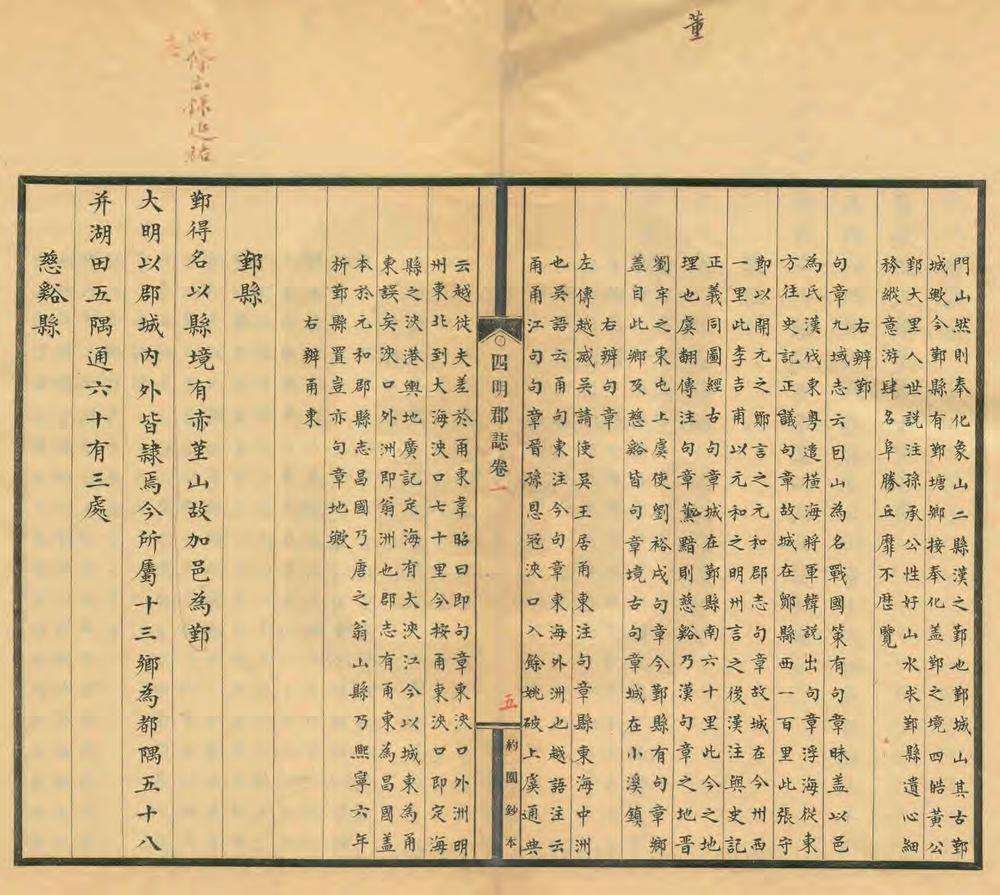 董
門山然則奉化象山二縣漢之鄞也鄞城山其古鄞
城歟今鄞縣有鄞塘鄉接奉化蓋鄞之境四皓黃公
鄞大里人世說注孫承公性好山水求鄞縣遺心細
務縱意游肆名阜勝丘靡不歷覽
右辨鄞
句章九域志云因山為名戰國策有句章昧蓋以邑
為氏漢伐東粵遣橫海將軍韓說出句章浮海從東
方往史記正議句章故城在鄮縣西一百里此張守
節以開元之鄮言之元和郡志句章故城在今州西
一里此李吉甫以元和之明州言之後漢注與史記
正義同圖經古句章城在鄞縣南六十里此今之地
理也虞翻傳注句章黠則慈谿乃漢句章之地晉
劉牢之東屯上虞使劉裕戍句章今鄞縣有句章鄉
蓋自此鄉及慈谿皆句章境古句章城在小溪鎮
右辨句章
左傳越滅吳請使吳王居甬東注句章縣東海中洲
也吳語云甬句東注今句章東海外洲也越語注云
甬甬江句句章晉孫恩冠浹口入餘姚破上虞通典
四明郡誌卷一
五
約園鈔本
云越徙夫差於甬東韋昭曰即句章東浹口外洲明
州東北到大海浹口七十里今按甬東浹口即定海
縣之浹港輿地廣記定海有大浹江今以城東為甬
東誤矣浹口外洲即翁洲也郡志有甬東為昌國蓋
本於元和郡縣志昌國乃唐之翁山縣乃熙寧六年
析鄞縣置豈亦句章地歟
右辨甬東
鄞縣
鄞得名以縣境有赤堇山故加邑為鄞
大明以郡城內外皆隸焉今所屬十三鄉為都隅五十八
并湖田五隅通六十有三處
慈谿縣